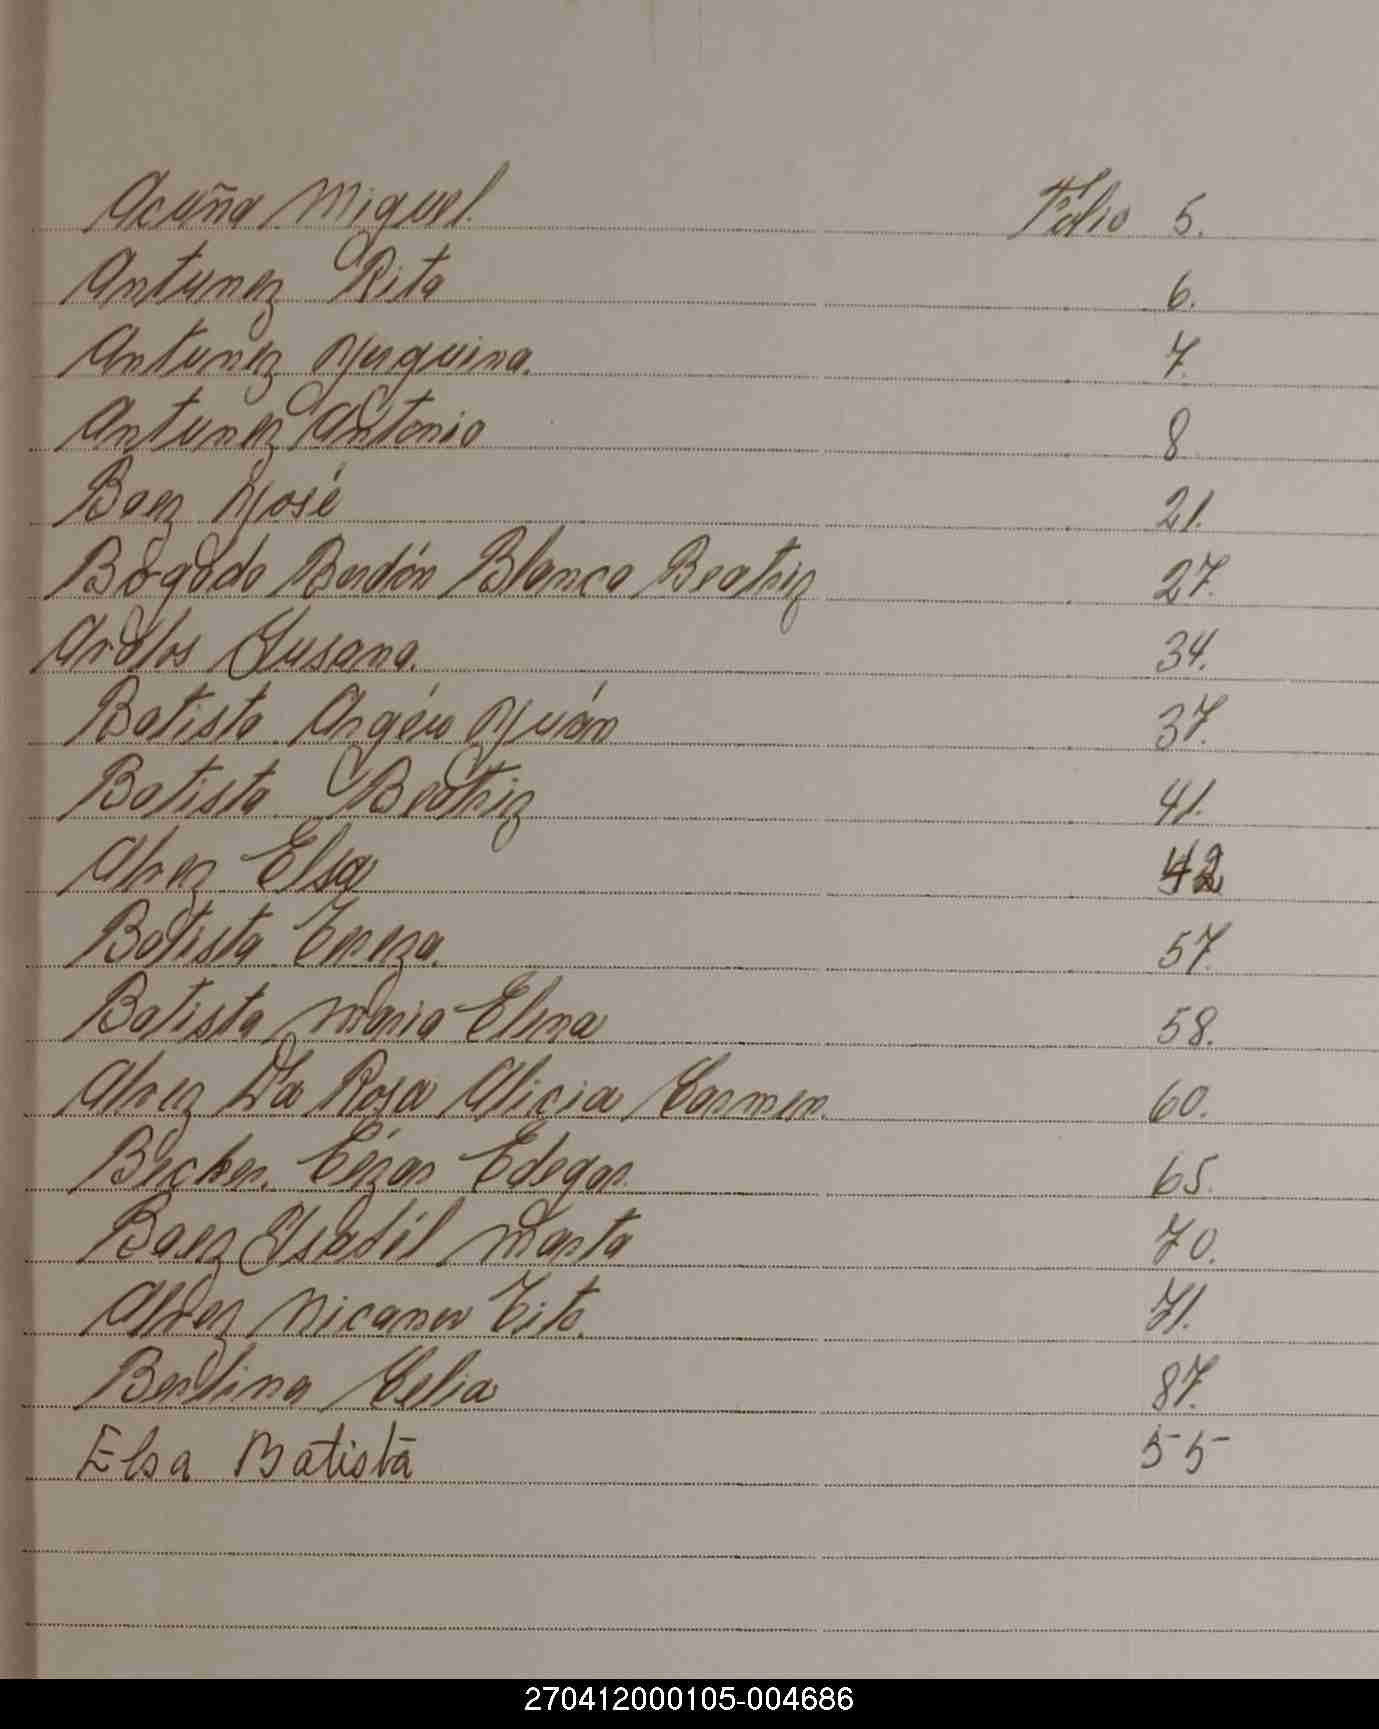 Acuña Miguel. Folio 5.
Antunez Rita 6.
Antunez 7.
Antunez Antonio 8
Baez José 21.
Bogado Bordón Blanca Beatriz 27.
Susana. 34.
Batista Argéu Juán 37.
Batista Beatriz 41.
Alvez Elsa 42
Batista Tereza. 57.
Batista Maria Elena 58.
Alvez Da Rosa Alicia Carmen. 60.
Becker. Cézar Edegar. 65.
Baez Isabél Marta 70.
Alvez Nicanor Tito. 71.
Berlina Celia 87.
Elsa Batista 55
270412000105-004686